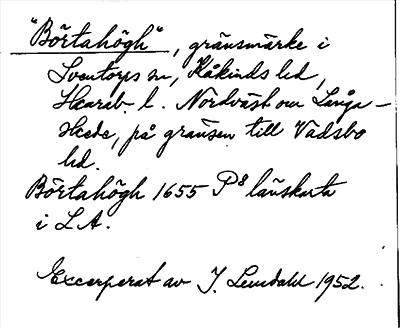 "Börtahögh", gränsmärke i
Sventorps sn, Kåkinds hd,
Skarab. l. Nordväst om Långa-
Hede, på gränsen till Vadsbo
hd.
Börtahögh 1655 P8 länskarta
i L.A.
Excerperat av J. Lundahl 1952.